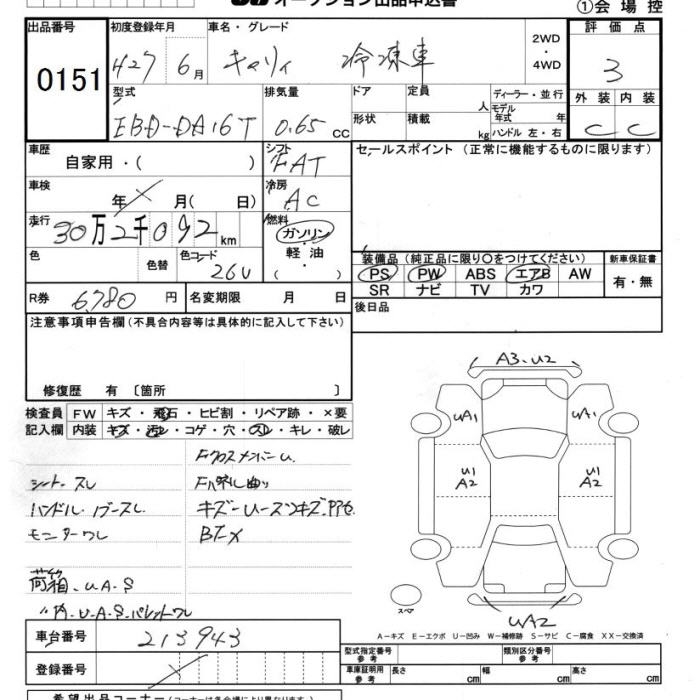 オークション出品申込書
①会場控
出品番号
0151
初度登録年月
H27 6月
車名・グレード
キャリィ 冷凍車
2WD
・
4WD
評価点
3
型式
EBD-DA16T
排気量
0.65 CC
ドア
定員
人
ディーラー・並行
モデル
年式 年
形状
積載
kg
ハンドル 左・右
外装 内装
C C
車歴
自家用・( )
シフト
FAT
セールスポイント (正常に機能するものに限ります)
車検
年 × 月( 日)
冷房
AC
走行
30万2千092km
燃料
ガソリン
・
軽油
( )
色
色替
色コード
26U
装備品(純正品に限り○をつけてください)
新車保証書
PS PW ABS エアB AW
有・無
SR ナビ TV カワ
R券
6,780 円
名変期限 月 日
後日品
注意事項申告欄(不具合内容等は具体的に記入して下さい)
修復歴 有 〔箇所 〕
検査員
記入欄
FW
キズ・飛石・ヒビ割・リペア跡・×要
内装
キズ・汚レ・コゲ・穴・スレ・キレ・破レ
FクロスメンバーU
シートスレ
ハンドル・
モニターワレ
荷箱、UAS
A3.U2
UA1
UA1
U1
A2
U1
A2
UA2
スペア
A-キズ E-エクボ U-凹み W-補修跡 S-サビ C-腐食 XX-交換済
車台番号
213943
登録番号
×
型式指定番号
参考
類別区分番号
参考
車庫証明用
参考
長さ cm
幅 cm
高さ cm
希望出品コーナー